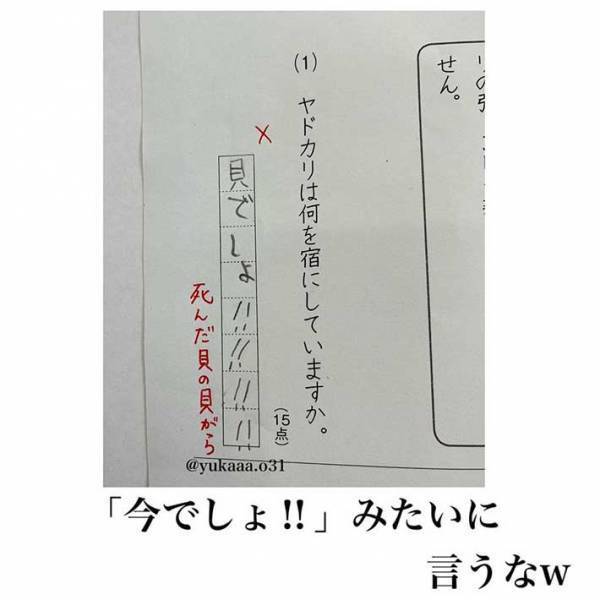 せん。
(1) ヤドカリは何を宿にしていますか。
(15点)
×
貝でしょ!!!!!!!!
死んだ貝の貝がら
@yukaaa.o31
「今でしょ!!」みたいに
言うなw